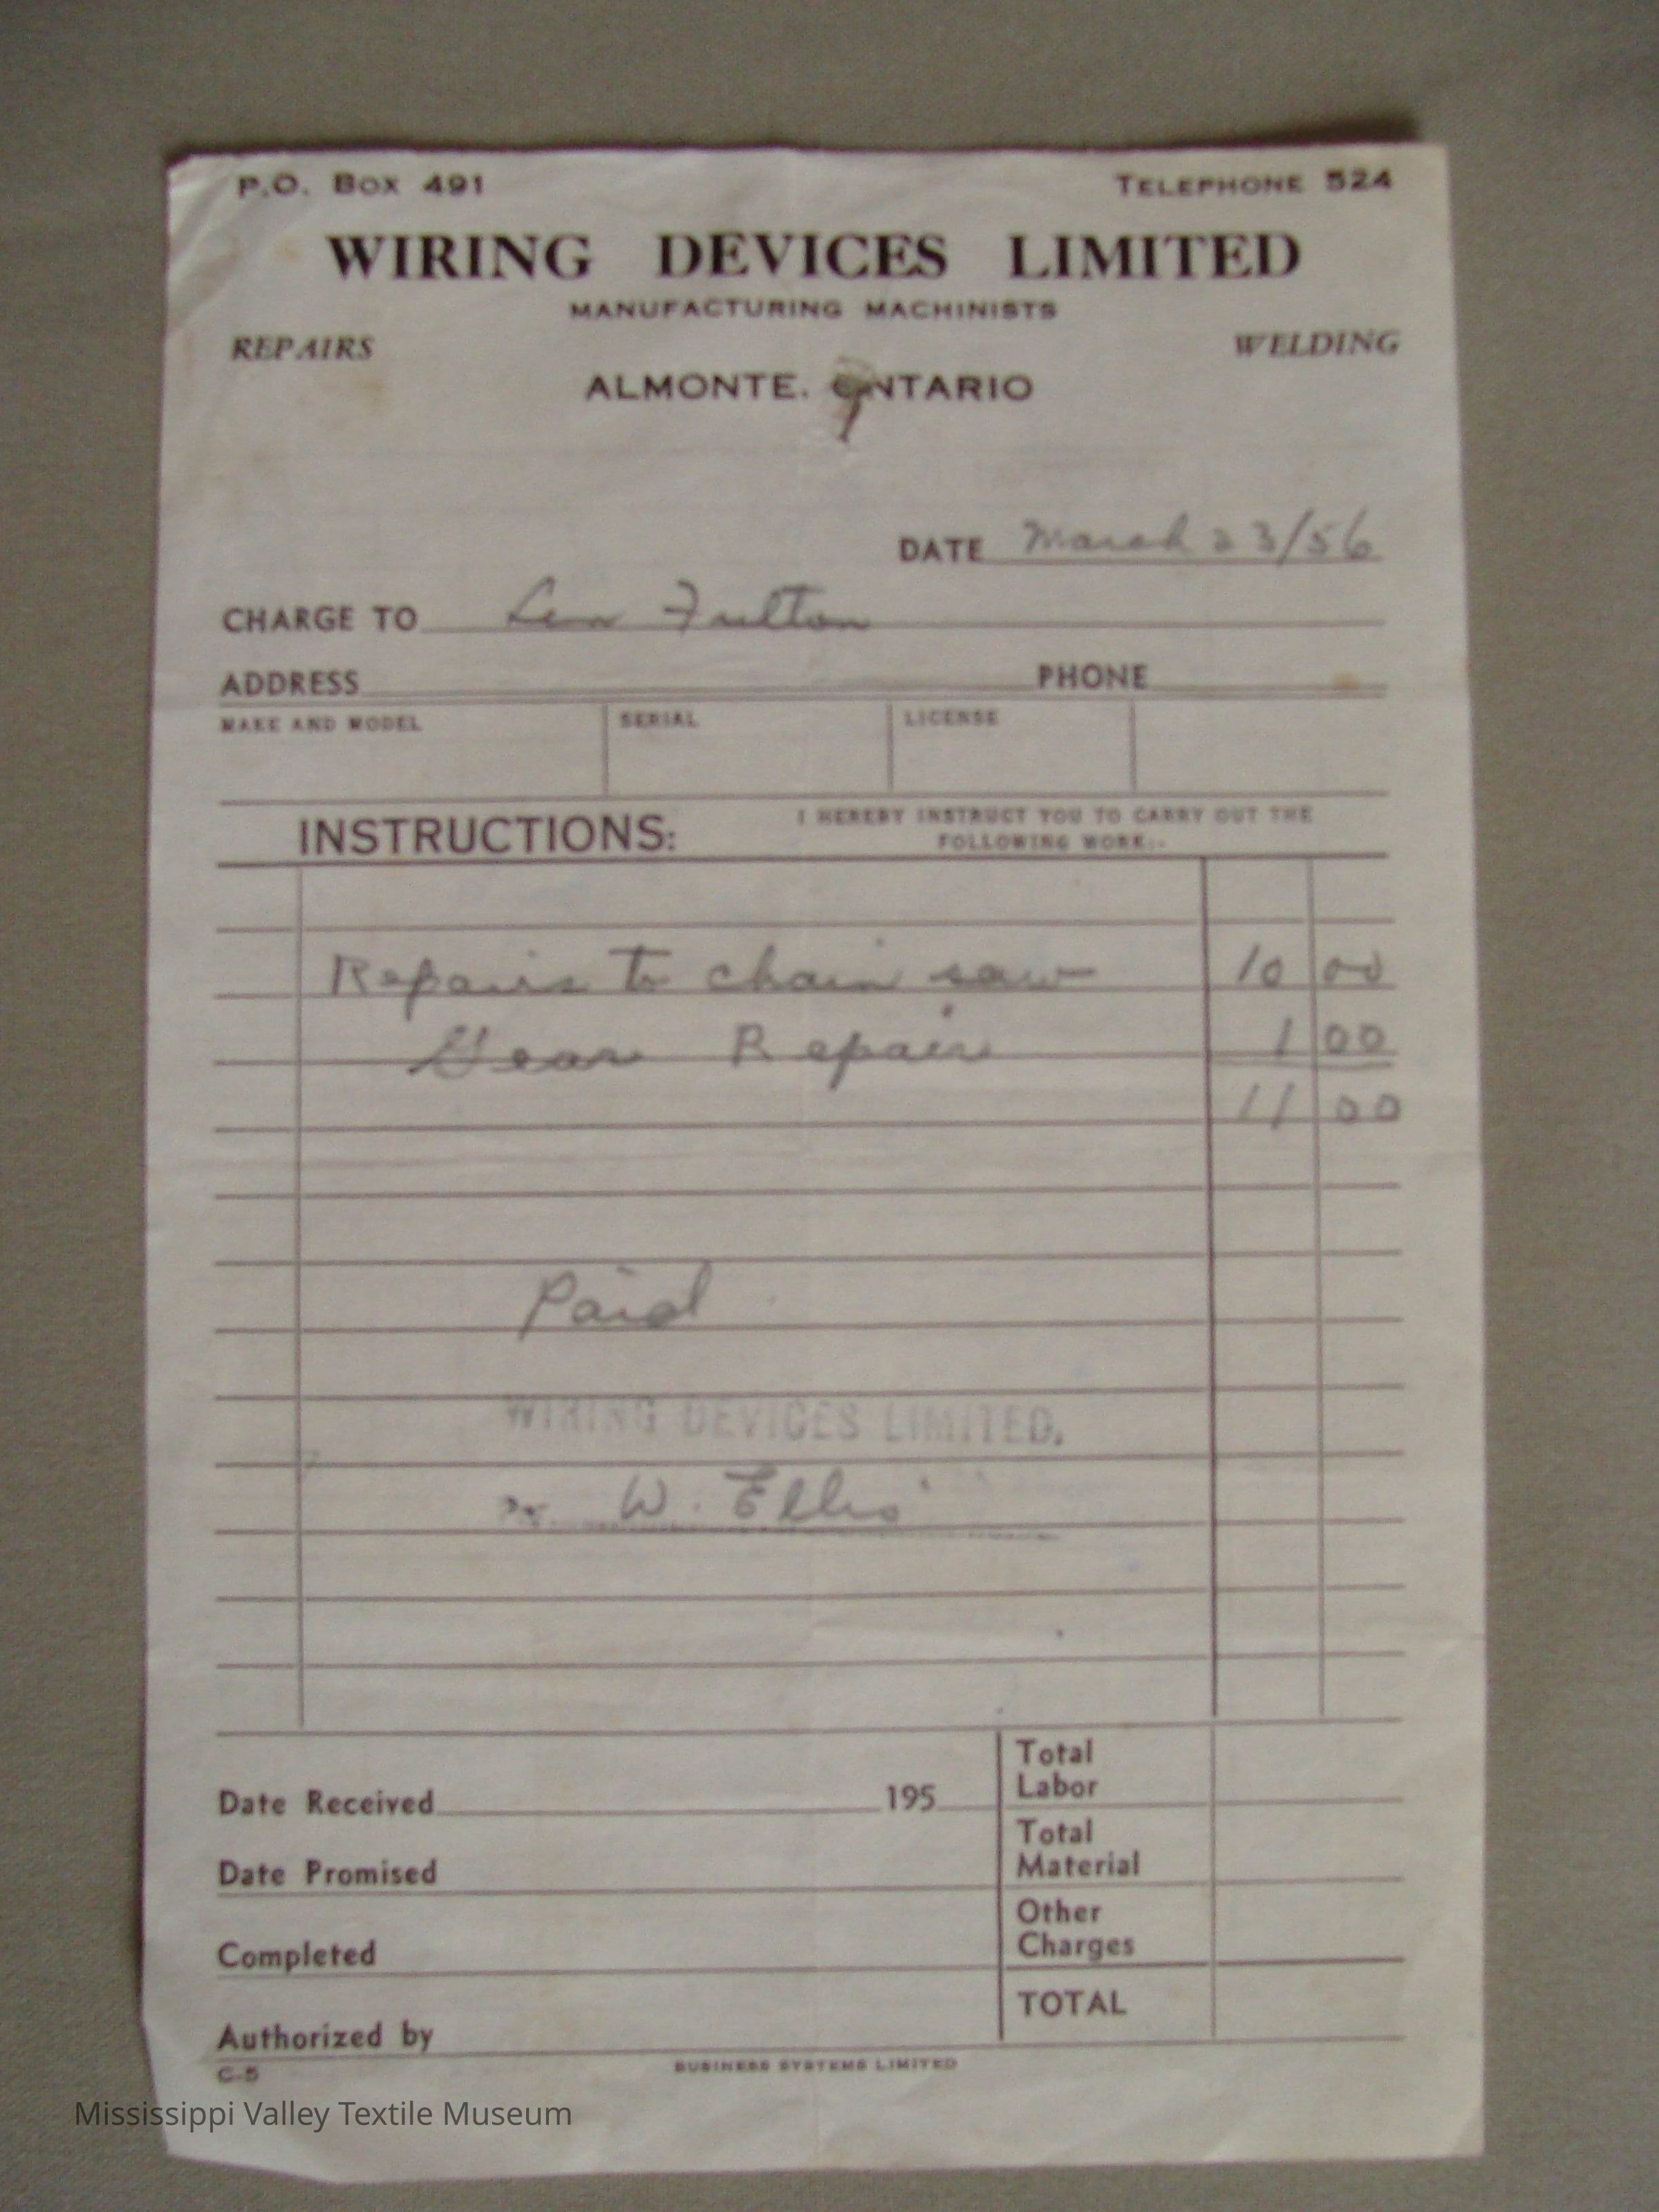 P.O. Box 491 TELEPHONE 524
WIRING DEVICES LIMITED
MANUFACTURING MACHINISTS
REPAIRS WELDING
ALMONTE, ONTARIO
DATE March 23/56
CHARGE TO Len Fulton
ADDRESS PHONE
MAKE AND MODEL SERIAL LICENSE
INSTRUCTIONS: I HEREBY INSTRUCT YOU TO CARRY OUT THE
FOLLOWING WORK:-
Repairs to chain saw 10 00
Gear Repair 1 00
11 00
Paid
WIRING DEVICES LIMITED.
W. Ellis
Date Received 195
Total
Labor
Total
Material
Date Promised
Other
Charges
Completed
TOTAL
Authorized by
C-5 BUSINESS SYSTEMS LIMITED
Mississippi Valley Textile Museum